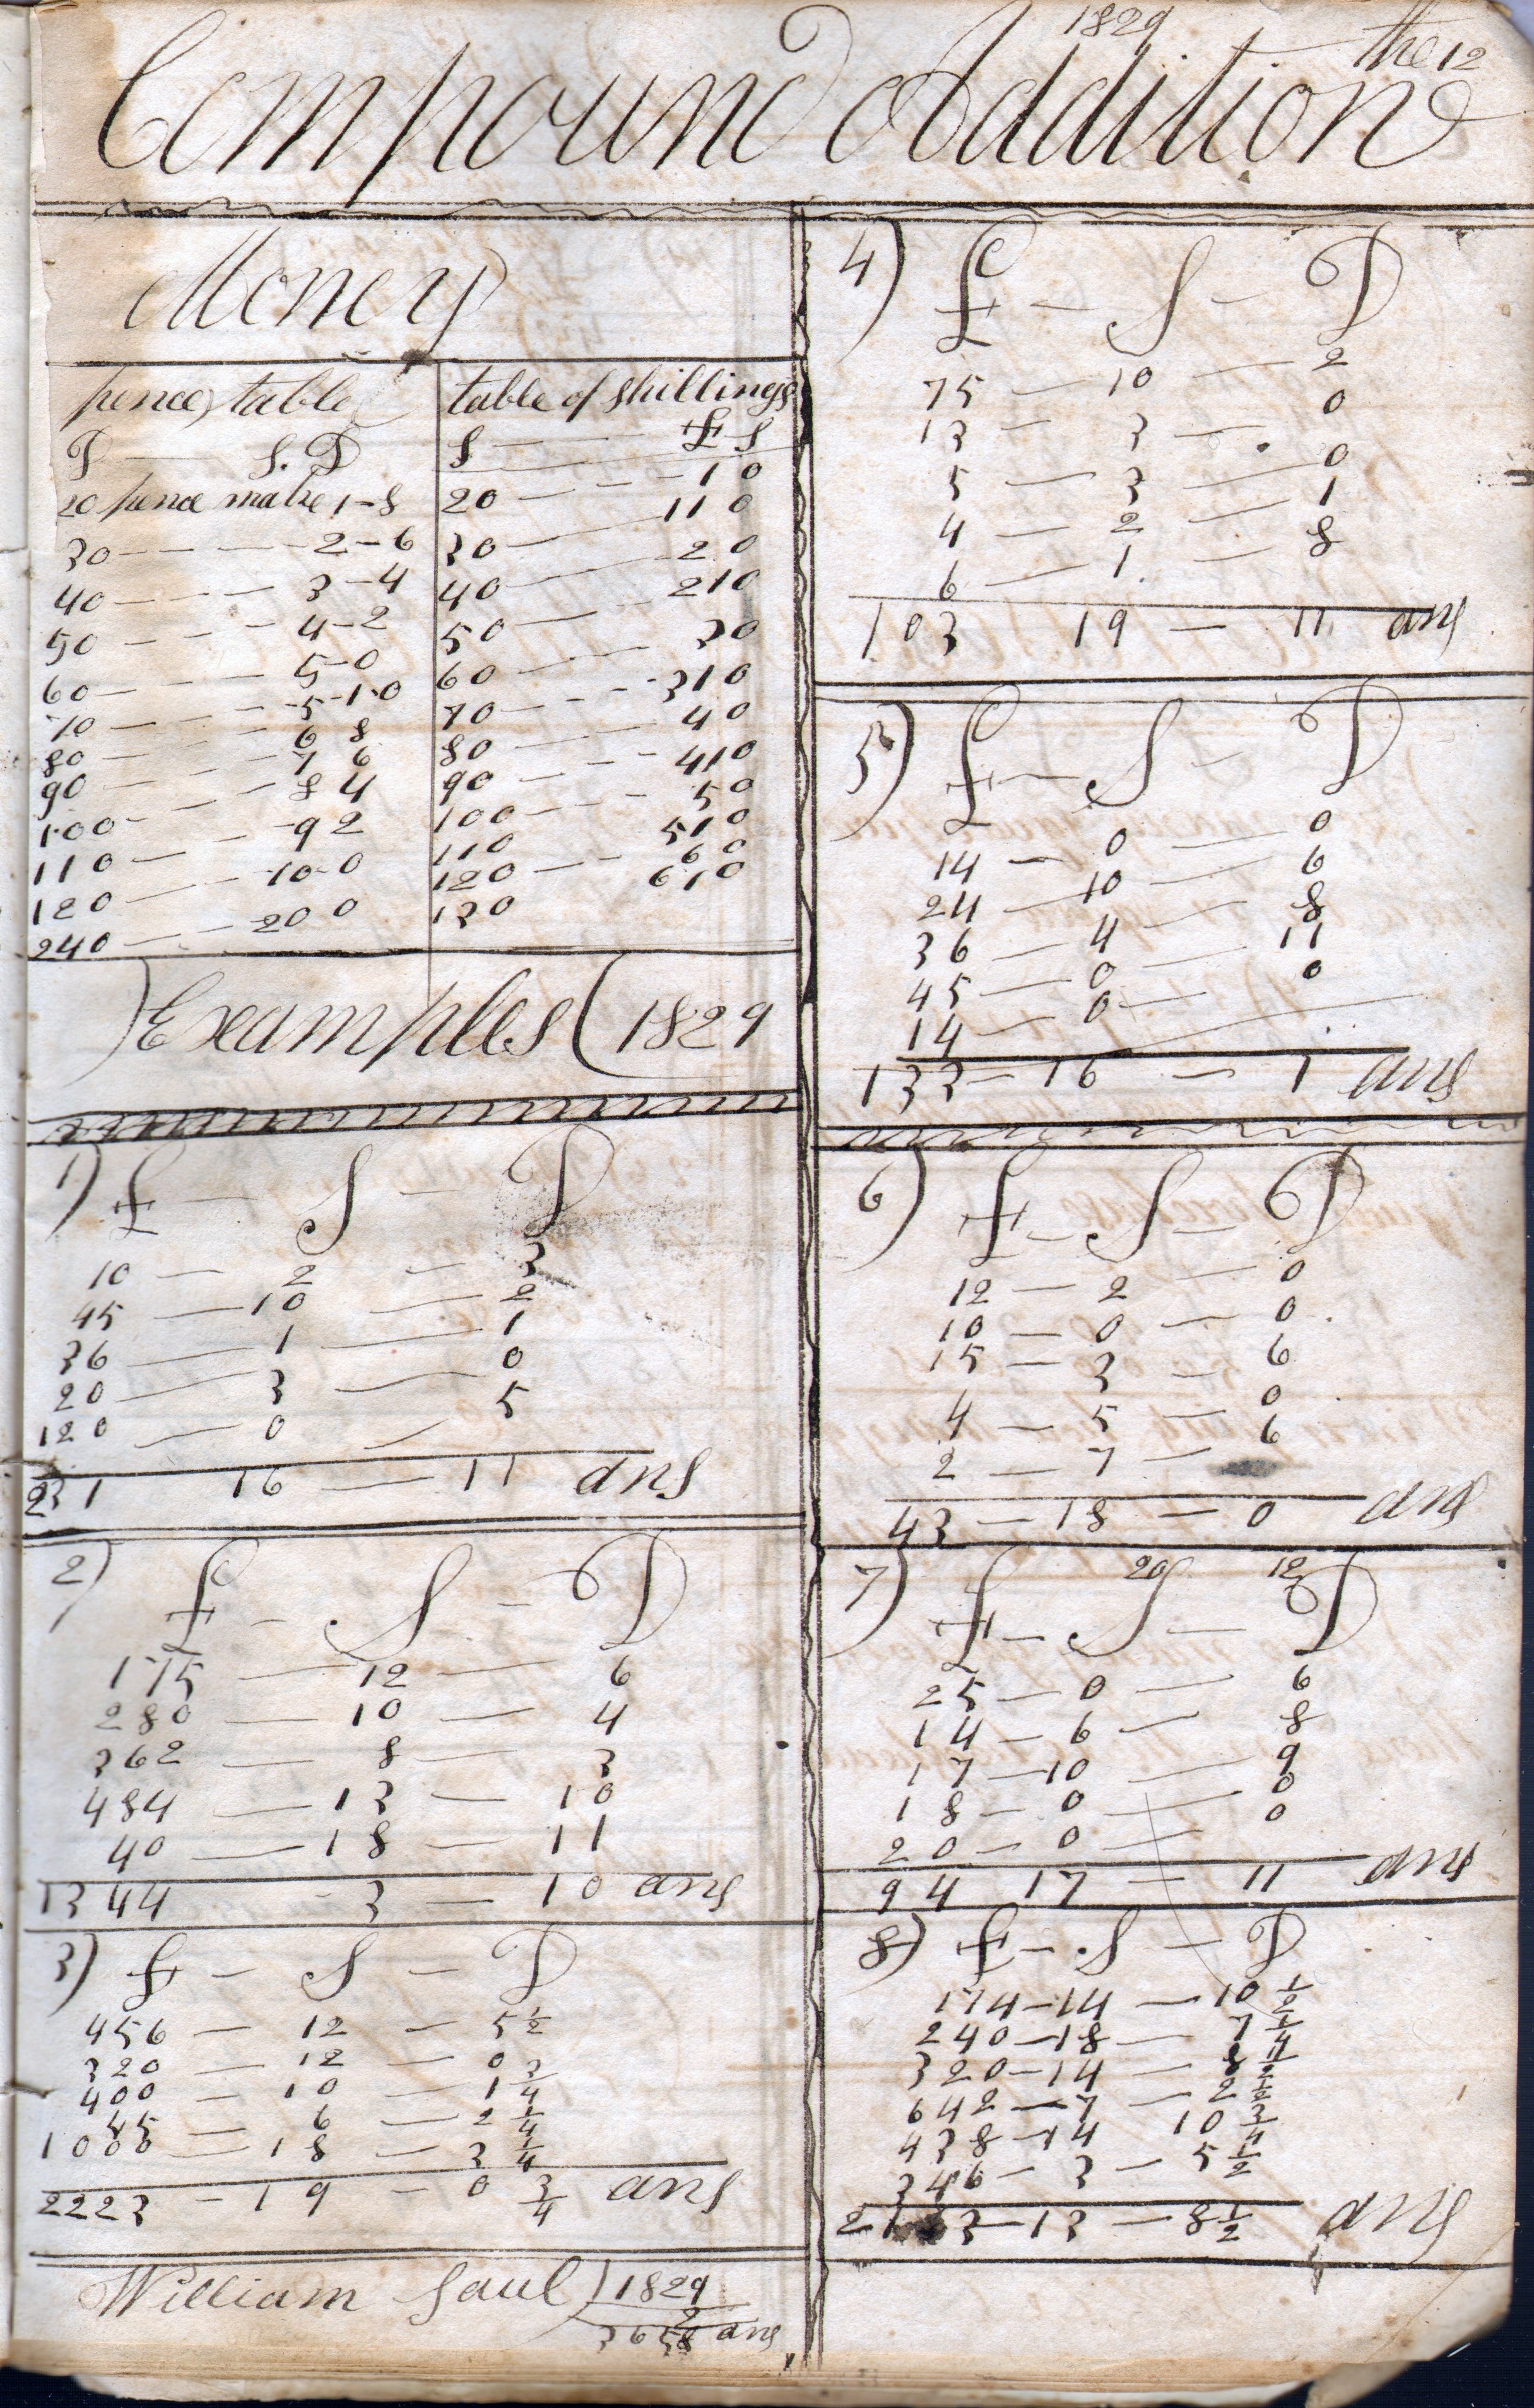 1829
the 12
Compound Addition
Money
pence table
D S. D
20 pence make 1-8
30 2-6
40 3-4
50 4-2
60 5-0
70 5-10
80 6 8
90 7 6
100 8 4
110 9 2
120 10-0
240 20 0
table of shillings
S £ S
20 1 0
30 1 10
40 2 0
50 2 10
60 3 0
70 3 10
80 4 0
90 4 10
100 5 0
110 5 10
120 6 0
130 6 10
Examples 1829
1) £ - S - D
10 - 2 - 3
45 - 10 - 2
36 - 1 - 1
20 - 3 - 0
120 - 0 - 5
231 16 - 11 ans
2) £ - S - D
175 - 12 - 6
280 - 10 - 4
362 - 8 - 3
484 - 13 - 10
40 - 18 - 11
1344 - 3 - 10 ans
3) £ - S - D
456 - 12 - 5 1/2
320 - 12 - 0
400 - 10 - 1 3/4
45 - 6 - 2 1/4
1000 - 18 - 3 1/4
2223 - 19 - 0 3/4 ans
William Saul 1829
2
3658 ans
4) £ - S - D
75 - 10 - 2
13 - 3 - 0
5 - 3 - 0
4 - 2 - 1
6 - 1 - 8
103 19 - 11 ans
5) £ - S - D
14 - 0 - 0
24 - 10 - 6
36 - 4 - 8
45 - 0 - 11
14 - 0 - 0
133 - 16 - 1 ans
6) £ - S - D
12 - 2 - 0
10 - 0 - 0
15 - 3 - 6
4 - 5 - 0
2 - 7 - 6
43 - 18 - 0 ans
20 12
7) £ - S - D
25 - 0 - 6
14 - 6 - 8
17 - 10 - 9
18 - 0 - 0
20 - 0 - 0
94 17 - 11 ans
8) £ - S - D
174 - 14 - 10 1/2
240 - 18 - 7 1/4
320 - 14 - 8
642 - 7 - 2 1/2
438 - 14 10 3/4
346 - 3 - 5 1/2
13 - 8 1/2 ans